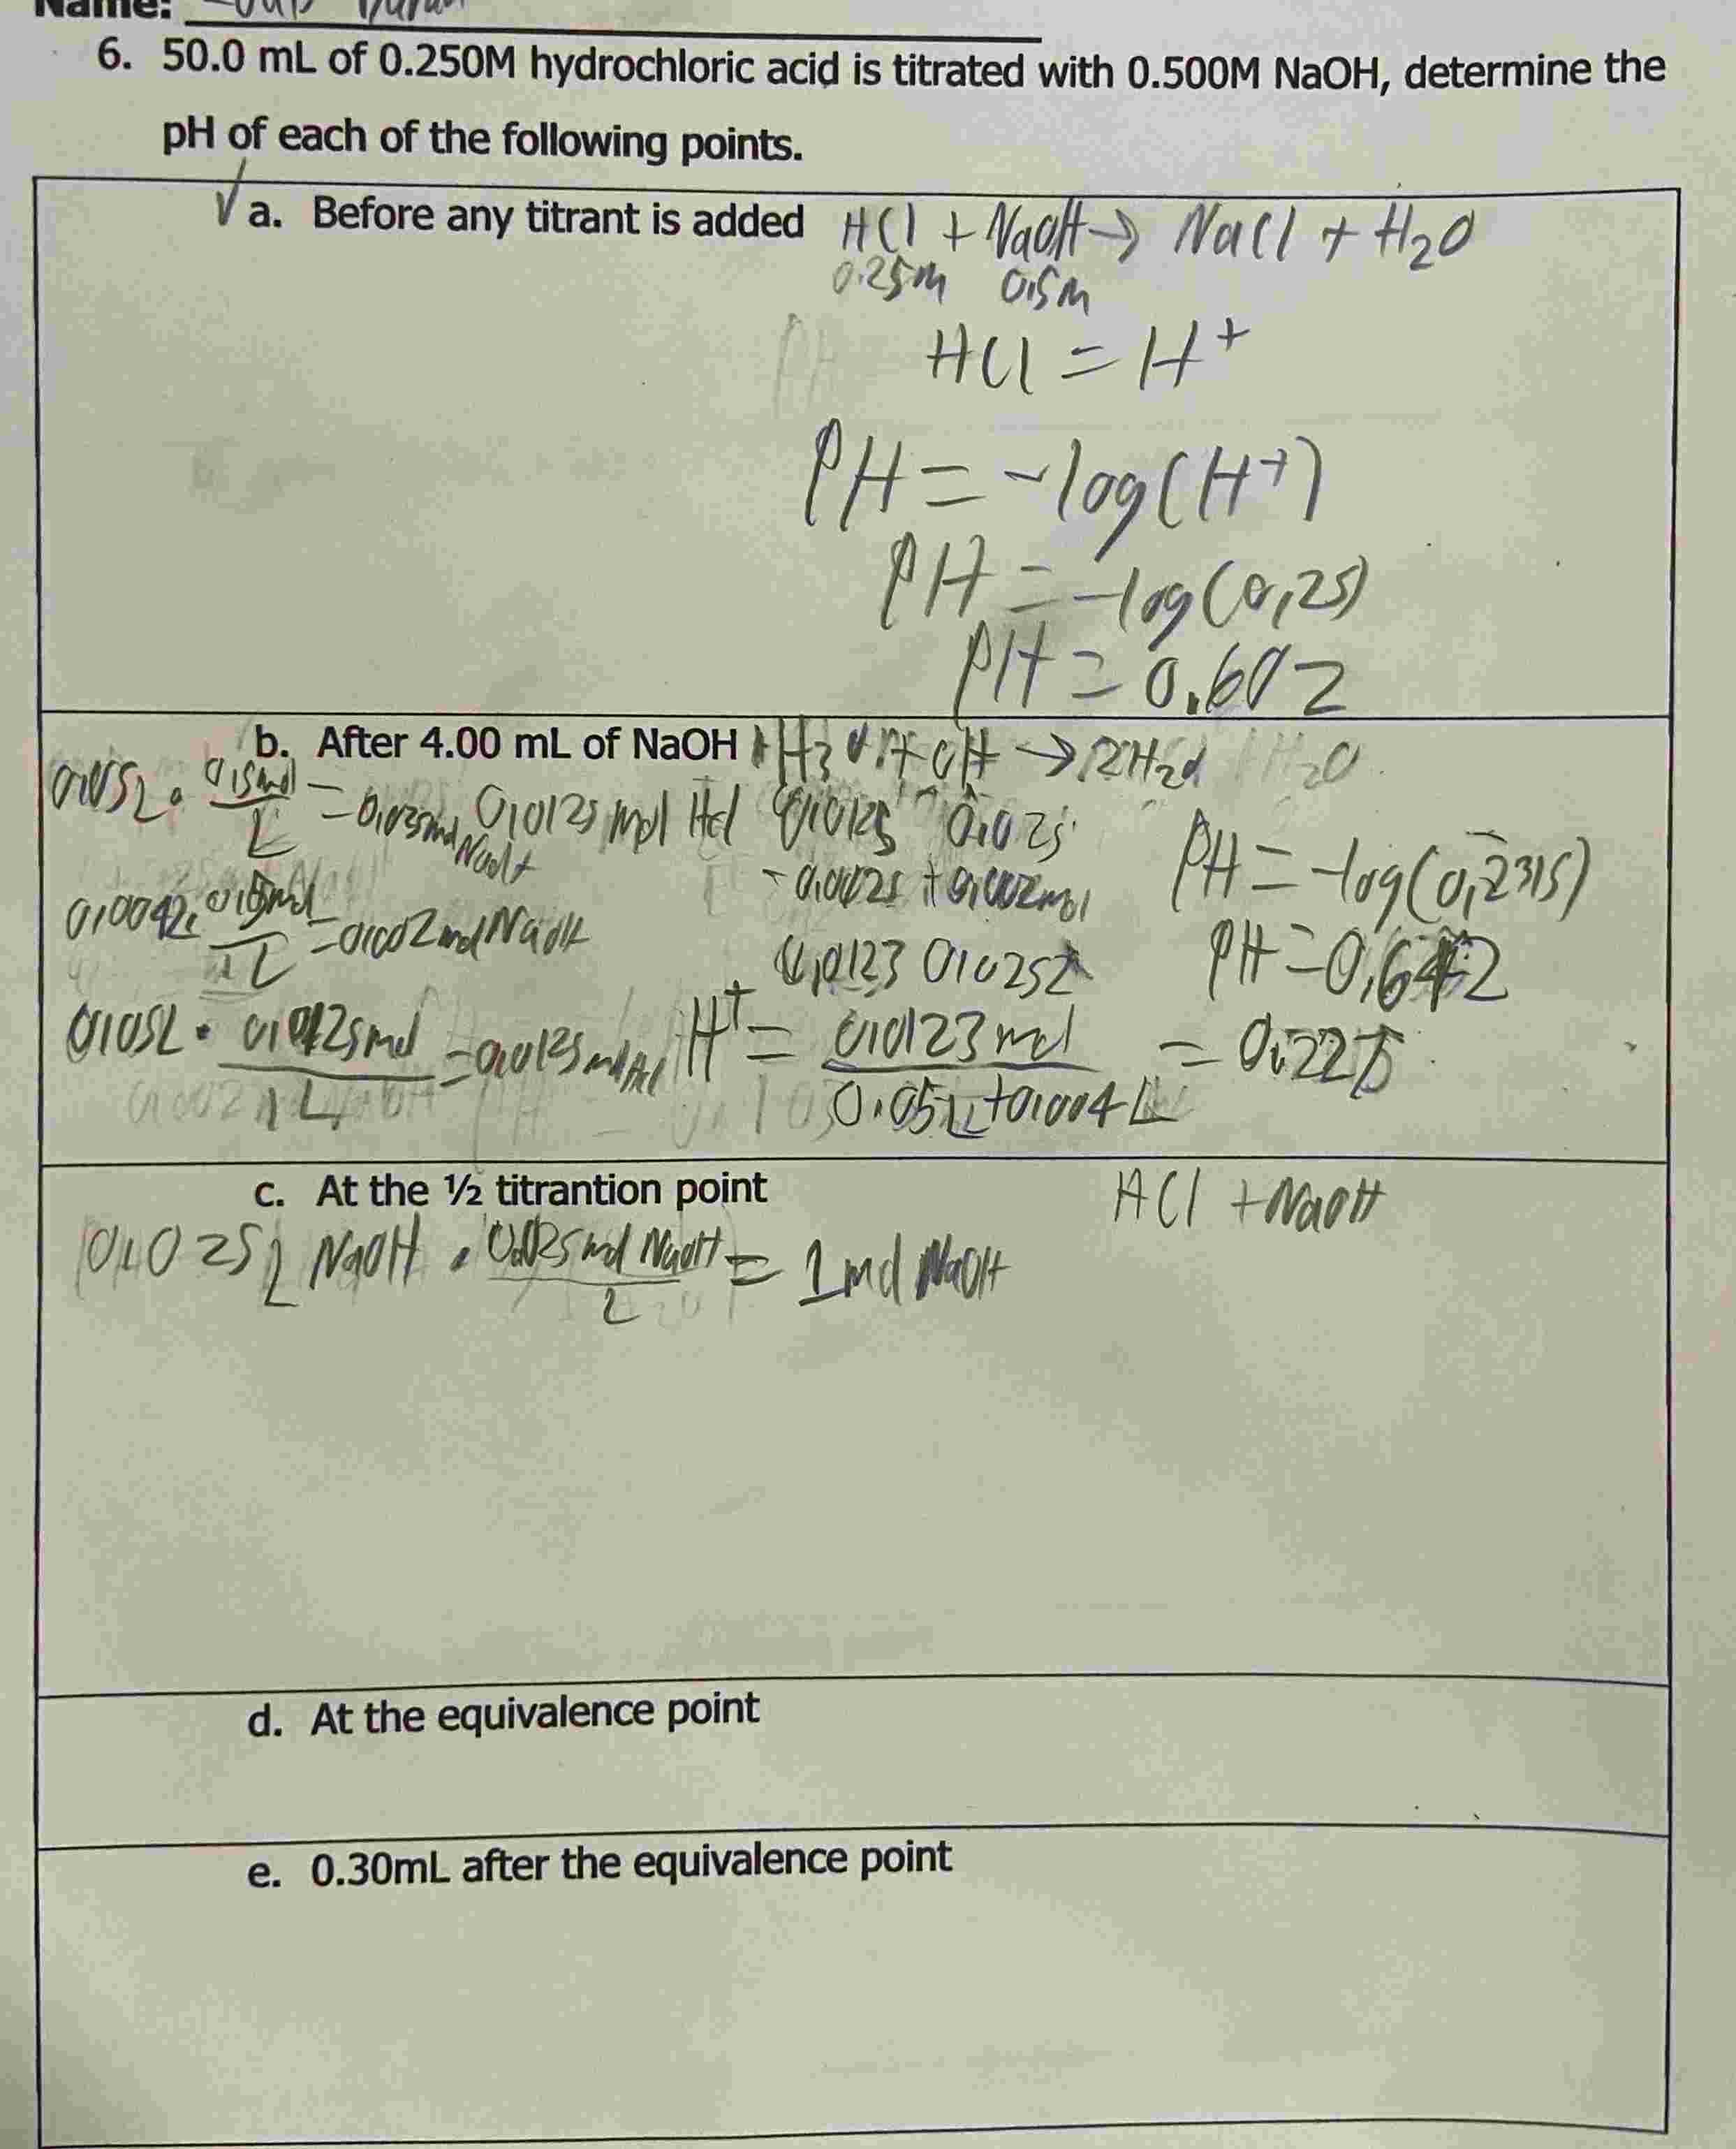 Name:
6. 50.0 mL of 0.250M hydrochloric acid is titrated with 0.500M NaOH, determine the
pH of each of the following points.
√ a. Before any titrant is added HCl + NaOH → NaCl + H2O
0.25M 0.5M
HCl = H+
PH = -log(H+)
PH = -log(0.25)
PH = 0.602
b. After 4.00 mL of NaOH
0.0125 mol HCl 0.0125 0.025
PH = -log(0.2315)
0.004L · 0.5mol/1L = 0.002 mol NaOH
0.0123 0.0252
PH = 0.642
0.05L · = 0.0125 mol HCl H+ = 0.0123 mol / 0.05L + 0.004L = 0.227
c. At the ½ titrantion point HCl + NaOH
0.025L NaOH · mol NaOH / L = 1 mol NaOH
d. At the equivalence point
e. 0.30mL after the equivalence point